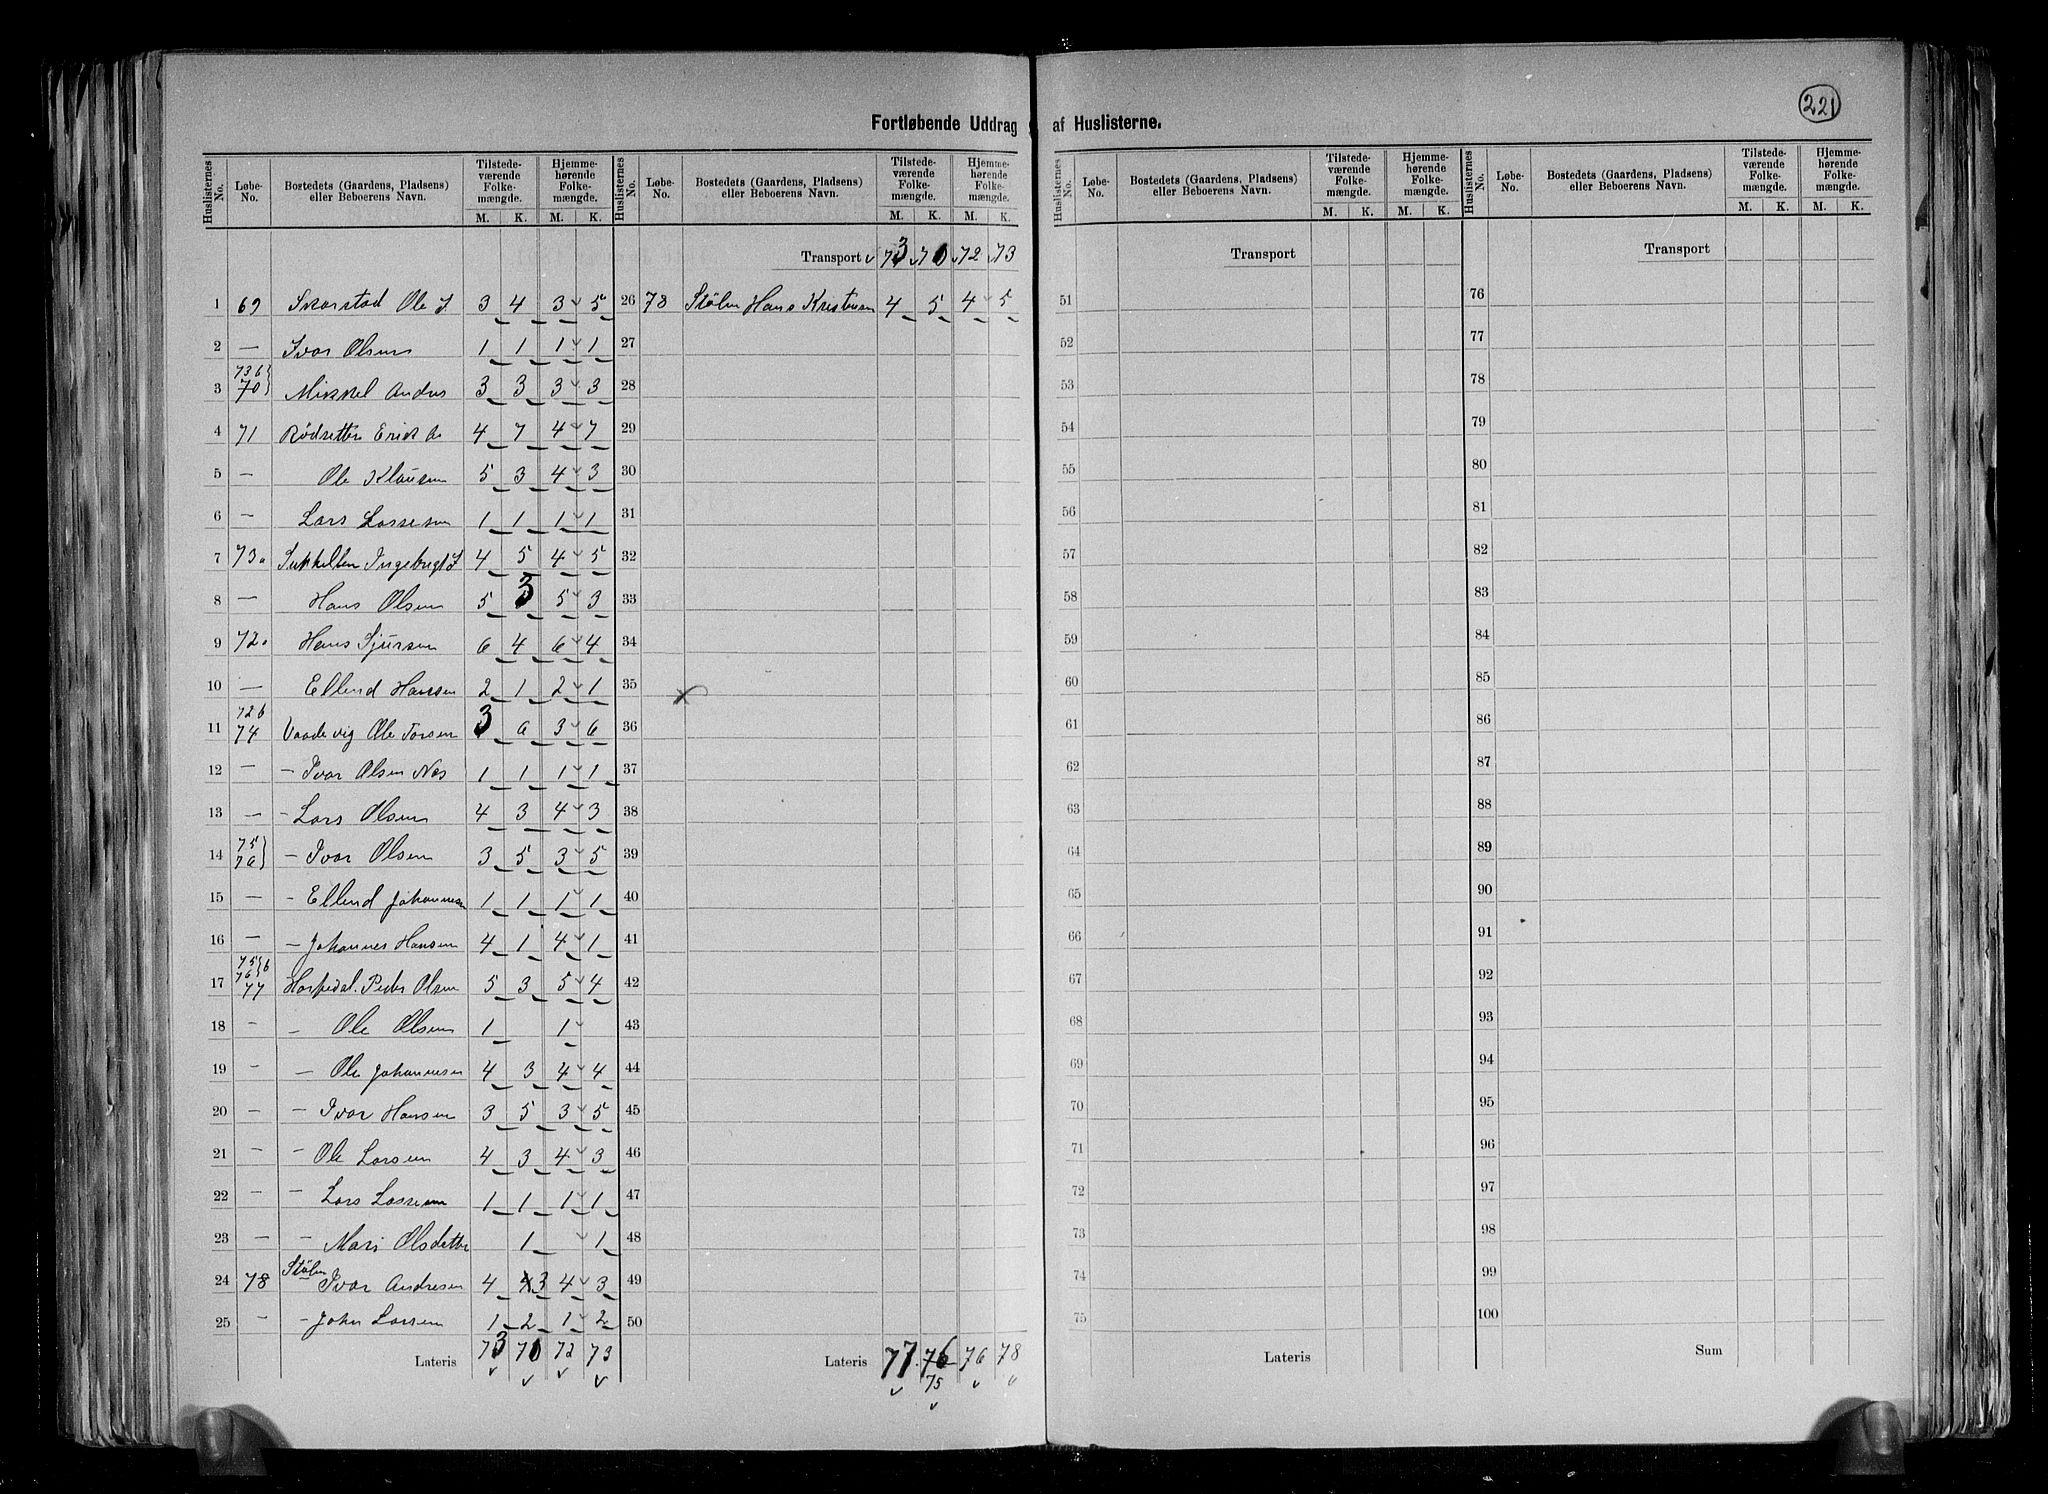 221
Fortløbende Uddrag af Huslisterne.
Huslisternes No. Løbe-No. Bostedets (Gaardens, Pladsens) eller Beboerens Navn. Tilstedeværende Folkemængde. M. K. Hjemmehørende Folkemængde. M. K.
Transport 73 70 72 73
1 69 Skorstad Ole J. 3 4 3 5
2 — Ivar Olsen 1 1 1 1
3 73b 70 Mikkel Anders 3 3 3 3
4 71 Rødsetter Erick 4 7 4 7
5 — Ole Klausen 5 3 4 3
6 — Lars Lassesen 1 1 1 1
7 73a Ingebrigt J 4 5 4 5
8 — Hans Olsen 5 3 5 3
9 72a Hans Sjursen 6 4 6 4
10 — Ellend Hansen 2 1 2 1
11 72b 74 Vaadevig Ole Torsen 3 6 3 6
12 — — Ivar Olsen Næs 1 1 1 1
13 — — Lars Olsen 4 3 4 3
14 75 76 — Ivar Olsen 3 5 3 5
15 — — Ellend Johannesen 1 1 1 1
16 — — Johannes Hansen 4 1 4 1
17 75 76 b 77 Horpedal. Peder Olsen 5 3 5 4
18 — — Ole Olsen 1 1
19 — — Ole Johannesen 4 3 4 4
20 — — Ivar Hansen 3 5 3 5
21 — — Ole Larsen 4 3 4 3
22 — — Lars Lassesen 1 1 1 1
23 — — Mari Olsdatter 1 1
24 78 Stølen Ivar Andresen 4 4 3 4 3
25 — — John Larsen 1 2 1 2
Lateris 73 70 72 73
26 78 Stølen Hans Kristensen 4 5 4 5
27
28
29
30
31
32
33
34
35
36
37
38
39
40
41
42
43
44
45
46
47
48
49
50
Lateris 77 76 76 78
75
Huslisternes No. Løbe-No. Bostedets (Gaardens, Pladsens) eller Beboerens Navn. Tilstedeværende Folkemængde. M. K. Hjemmehørende Folkemængde. M. K.
Transport
51
52
53
54
55
56
57
58
59
60
61
62
63
64
65
66
67
68
69
70
71
72
73
74
75
Lateris
Huslisternes No. Løbe-No. Bostedets (Gaardens, Pladsens) eller Beboerens Navn. Tilstedeværende Folkemængde. M. K. Hjemmehørende Folkemængde. M. K.
Transport
76
77
78
79
80
81
82
83
84
85
86
87
88
89
90
91
92
93
94
95
96
97
98
99
100
Sum